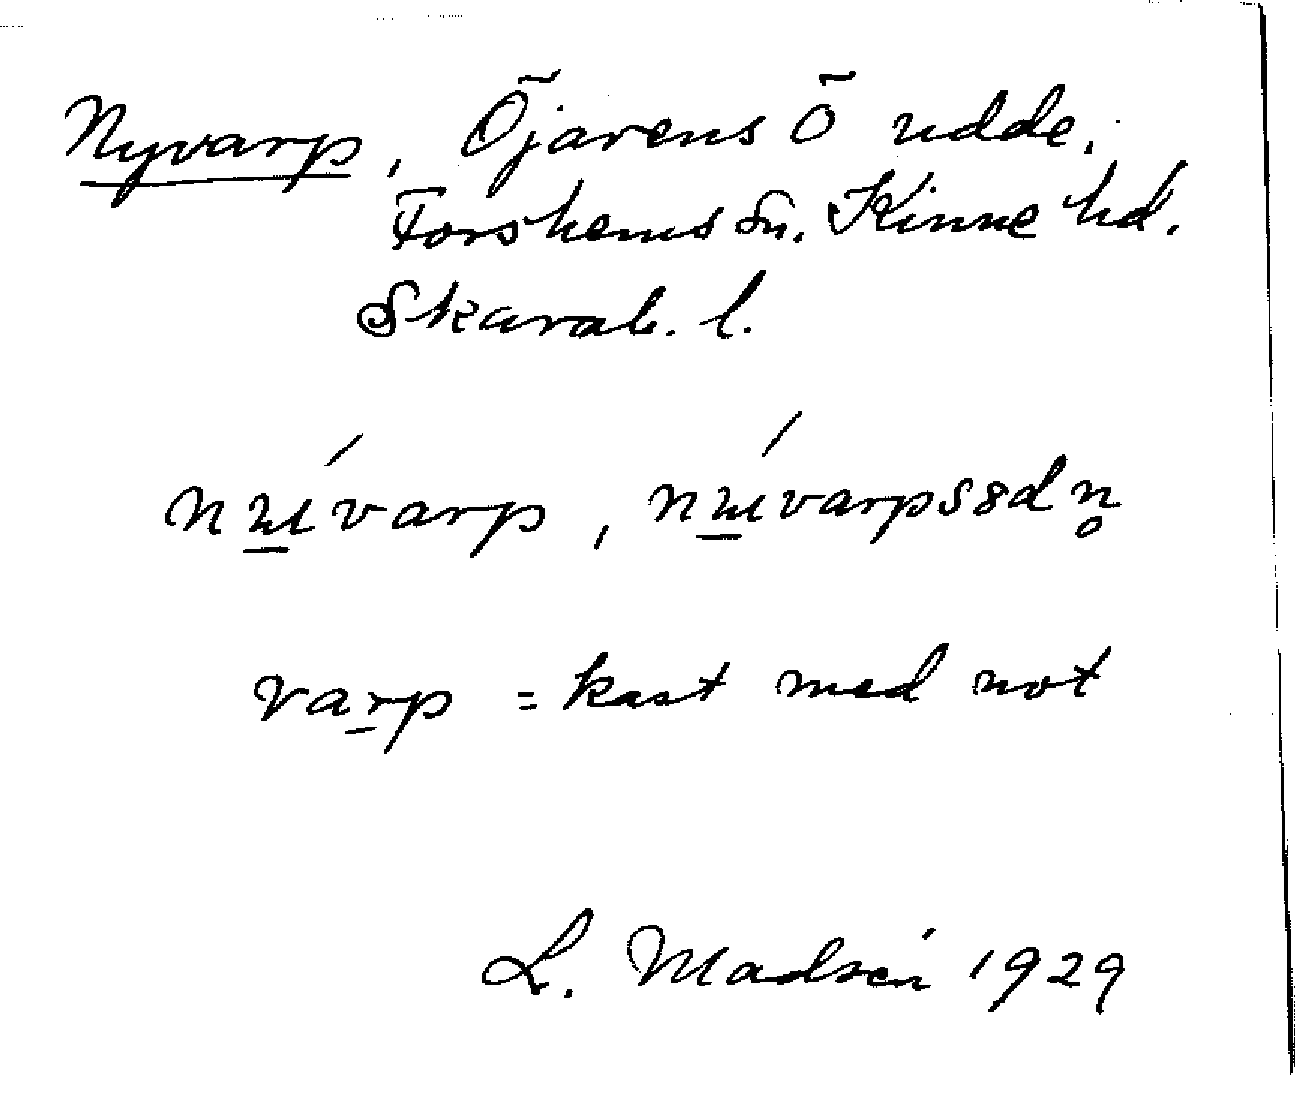 Nyvarp, Öjarens Ö udde.
Forshems sn. Kinne hd.
Skarab. l.
varp = kast med not
L. Madsén 1929